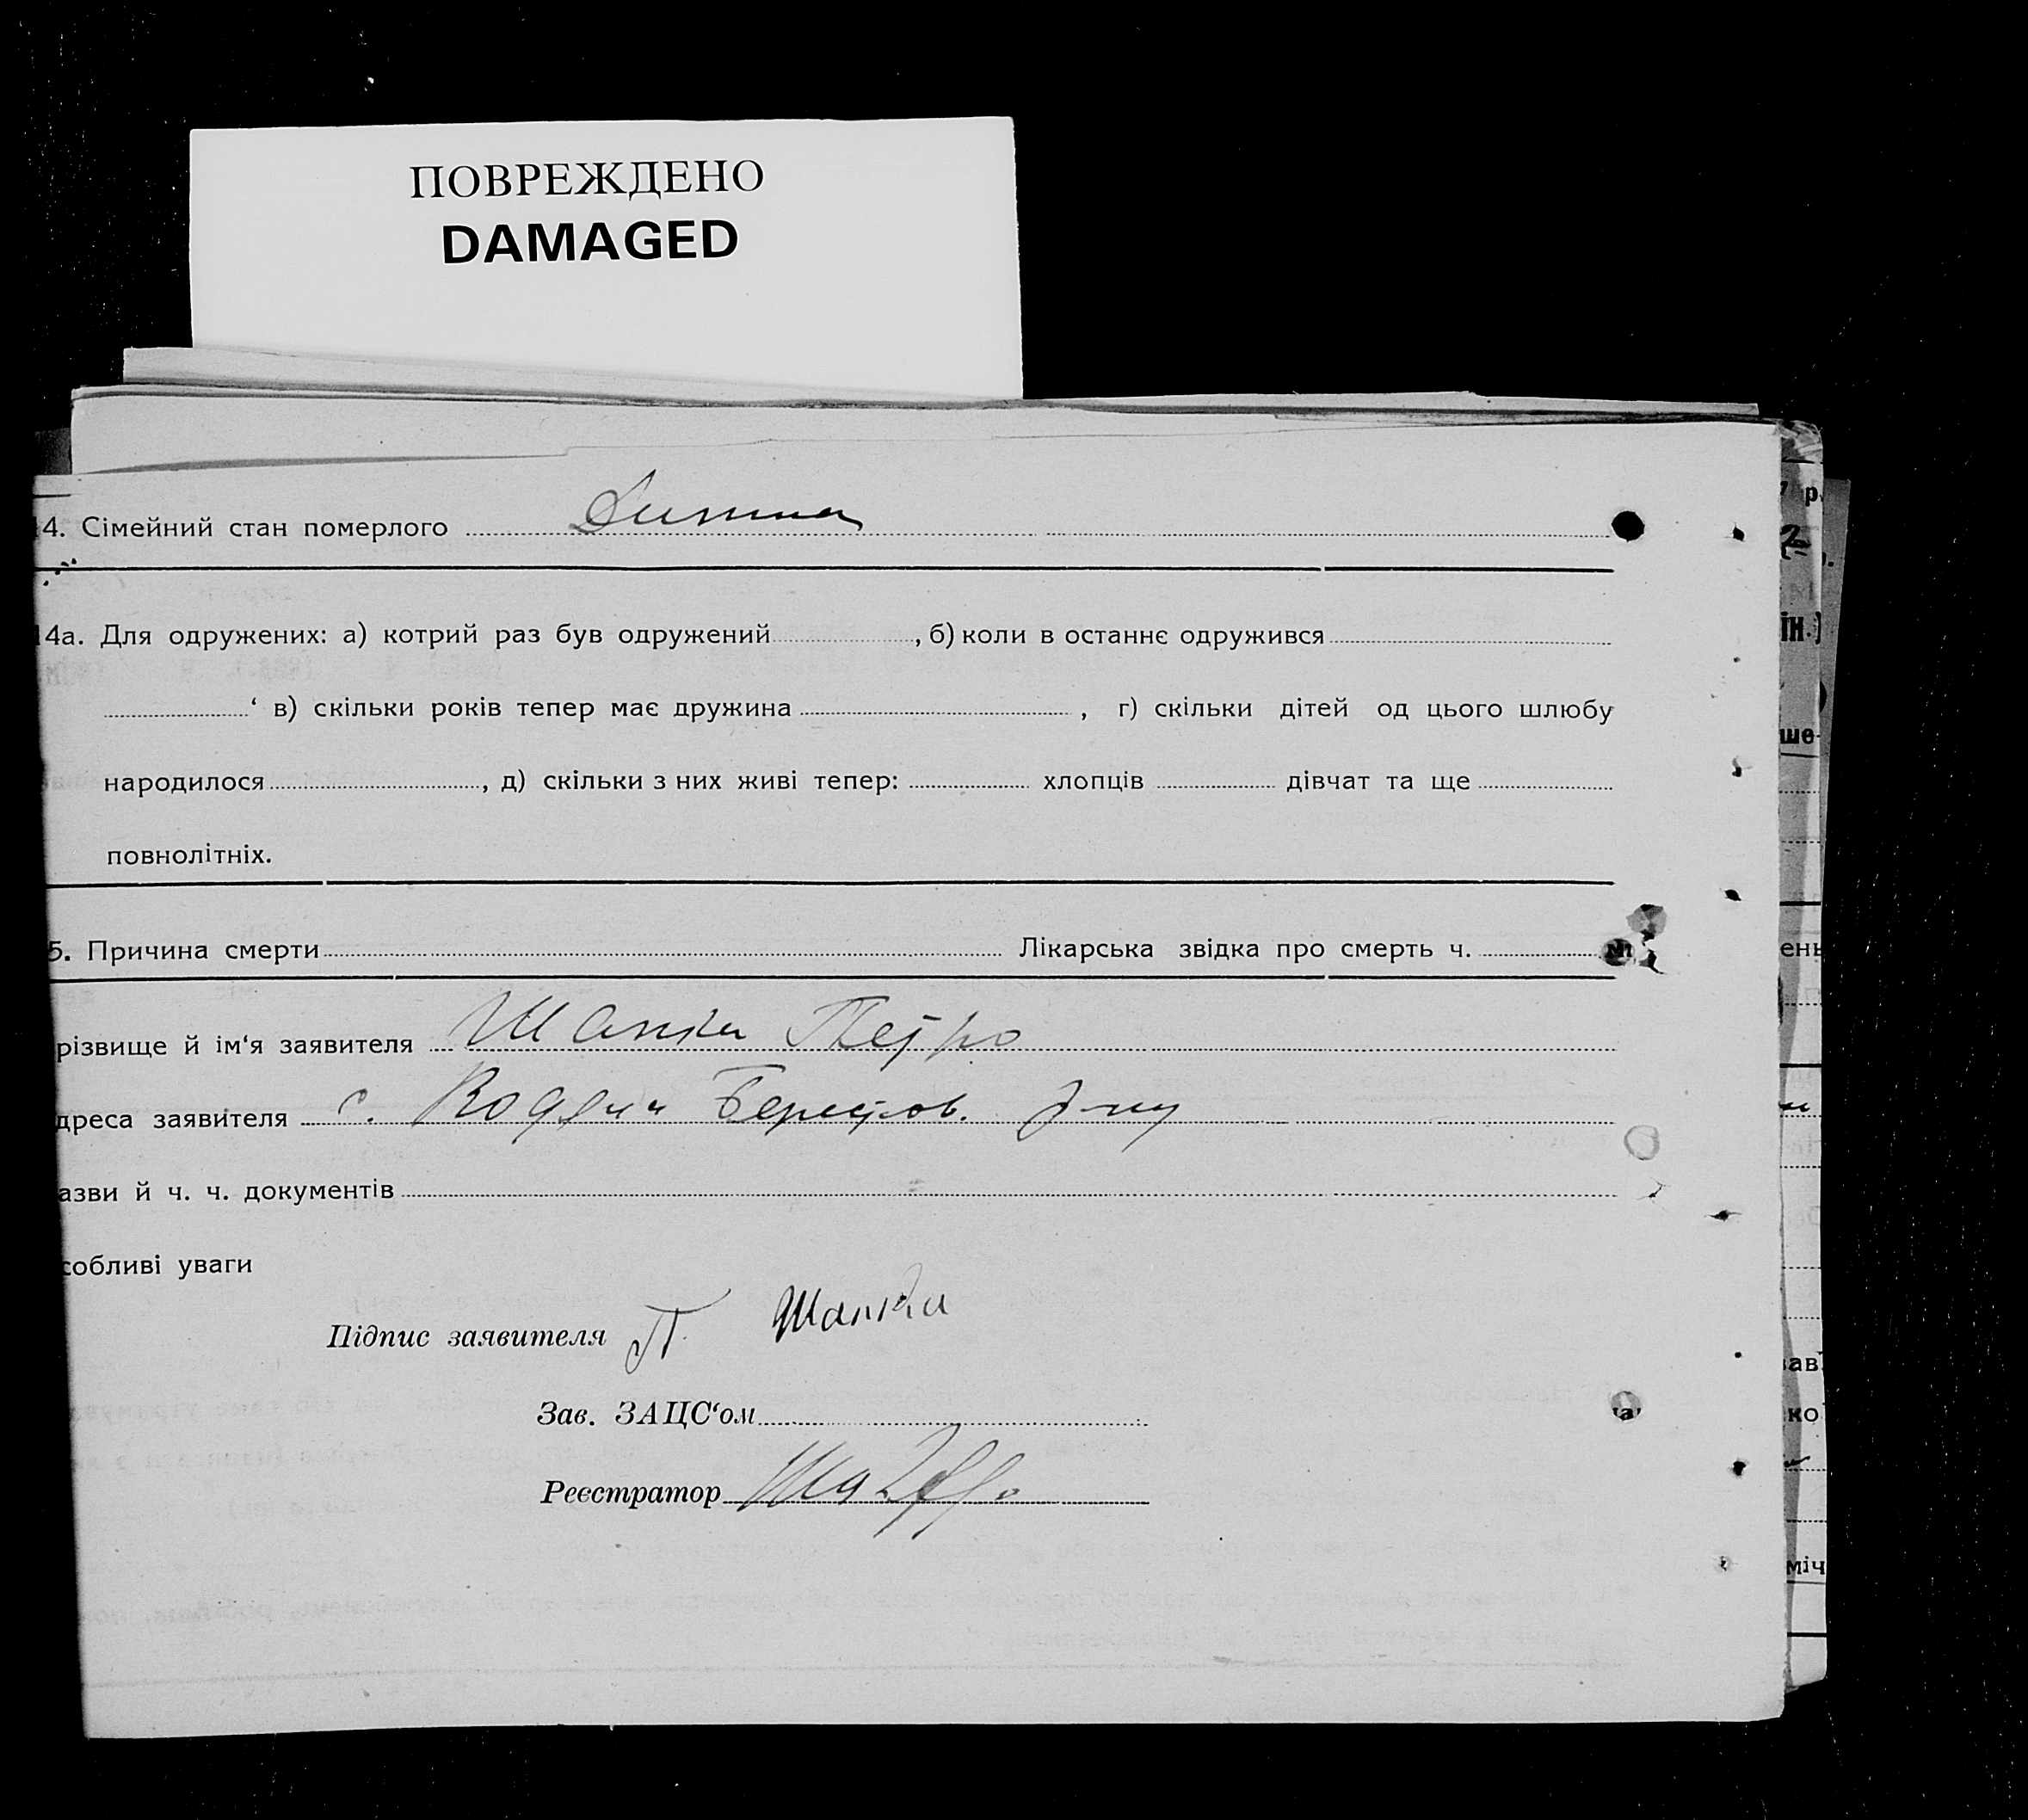 ПОВРЕЖДЕНО
DAMAGED
14. Сімейний стан померлого Дитина
14а. Для одружених: а) котрий раз був одружений , б) коли в останнє одружився
‘ в) скільки років тепер має дружина , г) скільки дітей од цього шлюбу
народилося , д) скільки з них живі тепер: хлопців дівчат та ще
повнолітніх.
5. Причина смерти Лікарська звідка про смерть ч.
різвище й ім‘я заявителя Петро
дреса заявителя с. р-ну
азви й ч. ч. документів
собливі уваги
Підпис заявителя П.
Зав. ЗАЦС‘ом
Реєстратор